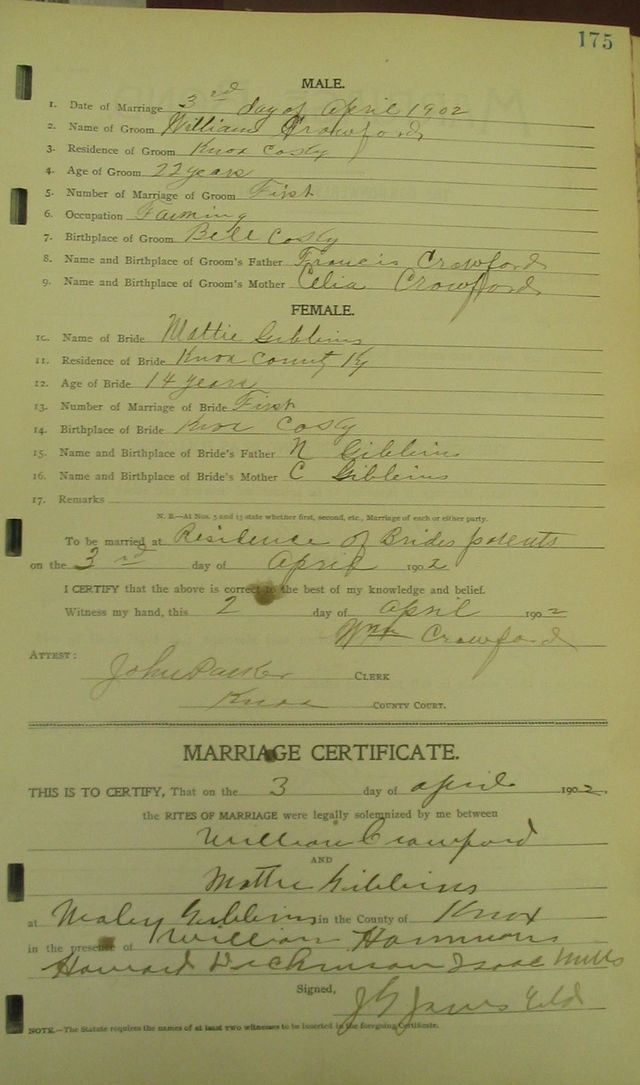 175
MALE.
1. Date of Marriage 3rd day of April 1902
2. Name of Groom William Crawford
3. Residence of Groom Knox Co Ky
4. Age of Groom 22 years
5. Number of Marriage of Groom First
6. Occupation Farming
7. Birthplace of Groom Bell Co Ky
8. Name and Birthplace of Groom's Father Francis Crawford
9. Name and Birthplace of Groom's Mother Celia Crawford
FEMALE.
10. Name of Bride Mattie Gibbins
11. Residence of Bride Knox County Ky
12. Age of Bride 14 years
13. Number of Marriage of Bride First
14. Birthplace of Bride Knox Co Ky
15. Name and Birthplace of Bride's Father N Gibbins
16. Name and Birthplace of Bride's Mother C Gibbins
17. Remarks
N. B.—At Nos. 5 and 13 state whether first, second, etc., Marriage of each or either party.
To be married at Residence of Brides parents
on the 3rd day of April 1902
I CERTIFY that the above is correct to the best of my knowledge and belief.
Witness my hand, this 2 day of April 1902
Wm Crawford
ATTEST: John Parker CLERK
Knox COUNTY COURT.
MARRIAGE CERTIFICATE.
THIS IS TO CERTIFY, That on the 3 day of April 1902.
the RITES OF MARRIAGE were legally solemnized by me between
William Crawford
AND
Mattie Gibbins
at Gibbins in the County of Knox
in the presence of William Hammons
Howard Dickinson Isaac Mills
Signed,
J G
NOTE.—The Statute requires the names of at least two witnesses to be inserted in the foregoing Certificate.